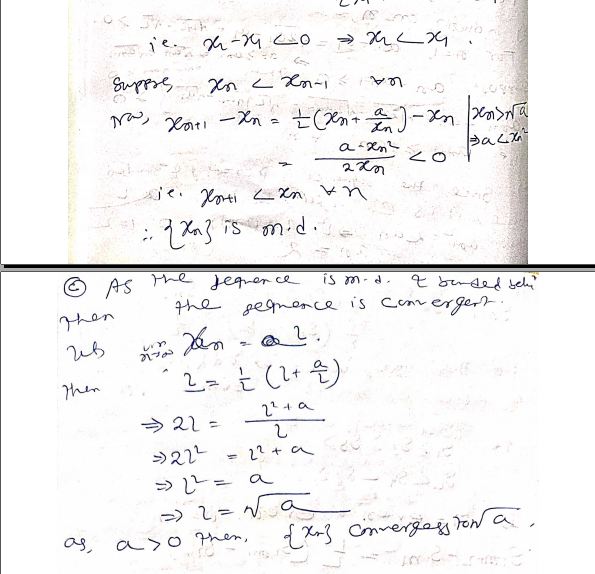 i.e. x₂-x₁ <0 ⇒ x₂ < x₁ .
Suppose xn < xn-1 ∀n
Now, xn+1 - xn = ½(xn + a/xn) - xn | xn>√a
= (a-xn²)/(2xn) <0 | ⇒a<xn²
i.e. xn+1 < xn ∀ n
∴ {xn} is m.d.
(c) As the sequence is m.d. & bounded
then the sequence is convergent.
Let lim n→∞ xn = l.
Then l = ½ (l + a/l)
⇒ 2l = (l² + a)/l
⇒ 2l² = l² + a
⇒ l² = a
⇒ l = √a
as, a>0 then, {xn} converges to √a .